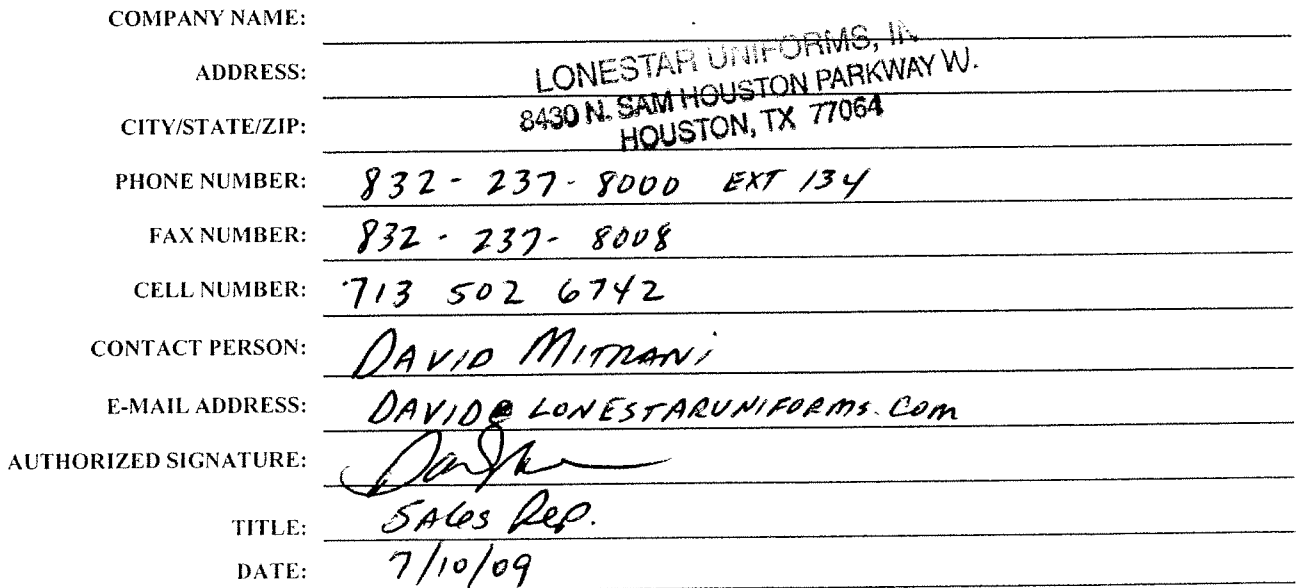 COMPANY NAME:
LONESTAR UNIFORMS, IN
ADDRESS:
8430 N. SAM HOUSTON PARKWAY W.
CITY/STATE/ZIP:
HOUSTON, TX 77064
PHONE NUMBER: 832-237-8000 EXT 134
FAX NUMBER: 832-237-8008
CELL NUMBER: 713 502 6742
CONTACT PERSON: DAVID MITRANi
E-MAIL ADDRESS: DAVID@LONESTARUNIFORMS.COM
AUTHORIZED SIGNATURE:
TITLE: SALes Rep.
DATE: 7/10/09